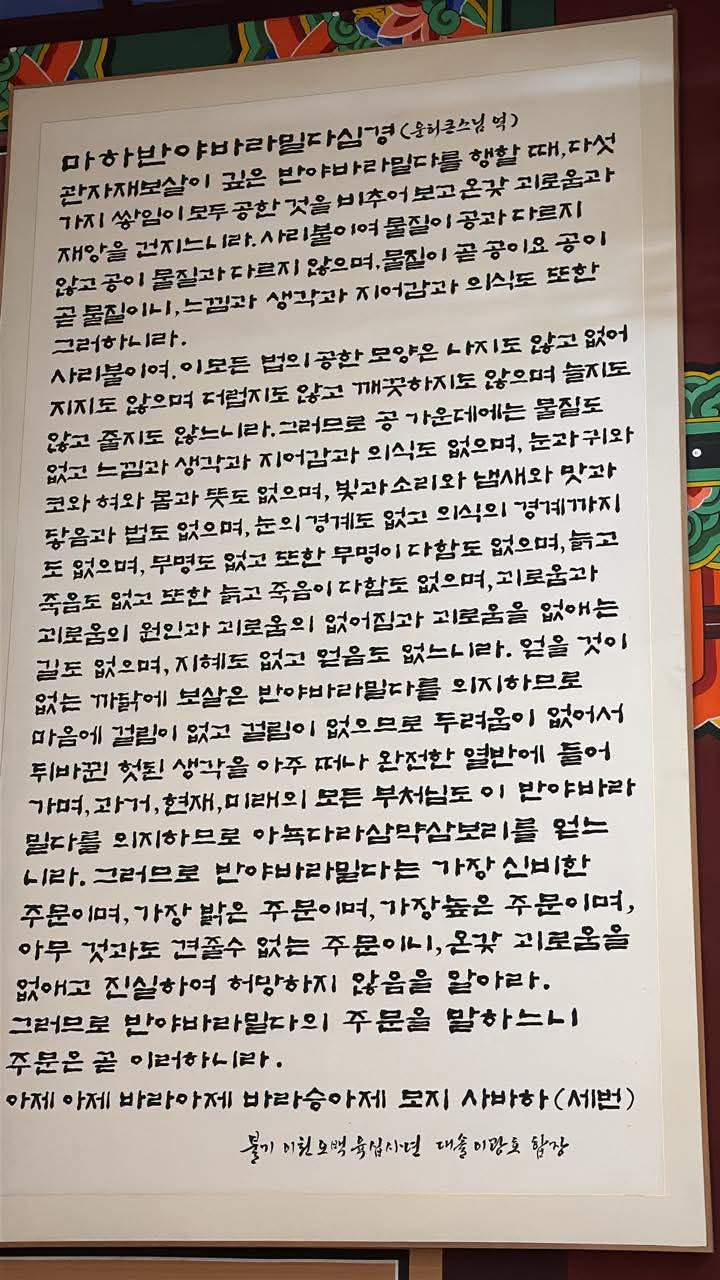 마하반야바라밀다심경 (운허큰스님 역)
관자재보살이 깊은 반야바라밀다를 행할 때, 다섯
가지 쌓임이 모두 공한 것을 비추어 보고 온갖 괴로움과
재앙을 건지느니라. 사리불이여 물질이 공과 다르지
않고 공이 물질과 다르지 않으며, 물질이 곧 공이요 공이
곧 물질이니, 느낌과 생각과 지어감과 의식도 또한
그러하니라.
사리불이여. 이 모든 법의 공한 모양은 나지도 않고 없어
지지도 않으며 더럽지도 않고 깨끗하지도 않으며 늘지도
않고 줄지도 않느니라. 그러므로 공 가운데에는 물질도
없고 느낌과 생각과 지어감과 의식도 없으며, 눈과 귀와
코와 혀와 몸과 뜻도 없으며, 빛과 소리와 냄새와 맛과
닿음과 법도 없으며, 눈의 경계도 없고 의식의 경계까지
도 없으며, 무명도 없고 또한 무명이 다함도 없으며, 늙고
죽음도 없고 또한 늙고 죽음이 다함도 없으며, 괴로움과
괴로움의 원인과 괴로움의 없어짐과 괴로움을 없애는
길도 없으며, 지혜도 없고 얻음도 없느니라. 얻을 것이
없는 까닭에 보살은 반야바라밀다를 의지하므로
마음에 걸림이 없고 걸림이 없으므로 두려움이 없어서
뒤바뀐 헛된 생각을 아주 떠나 완전한 열반에 들어
가며, 과거, 현재, 미래의 모든 부처님도 이 반야바라
밀다를 의지하므로 아뇩다라삼먁삼보리를 얻느
니라. 그러므로 반야바라밀다는 가장 신비한
주문이며, 가장 밝은 주문이며, 가장 높은 주문이며,
아무 것과도 견줄수 없는 주문이니, 온갖 괴로움을
없애고 진실하여 허망하지 않음을 알아라.
그러므로 반야바라밀다의 주문을 말하느니
주문은 곧 이러하니라.
아제 아제 바라아제 바라승아제 모지 사바하 (세번)
불기 이천오백육십사년 대솔 이광호 합장